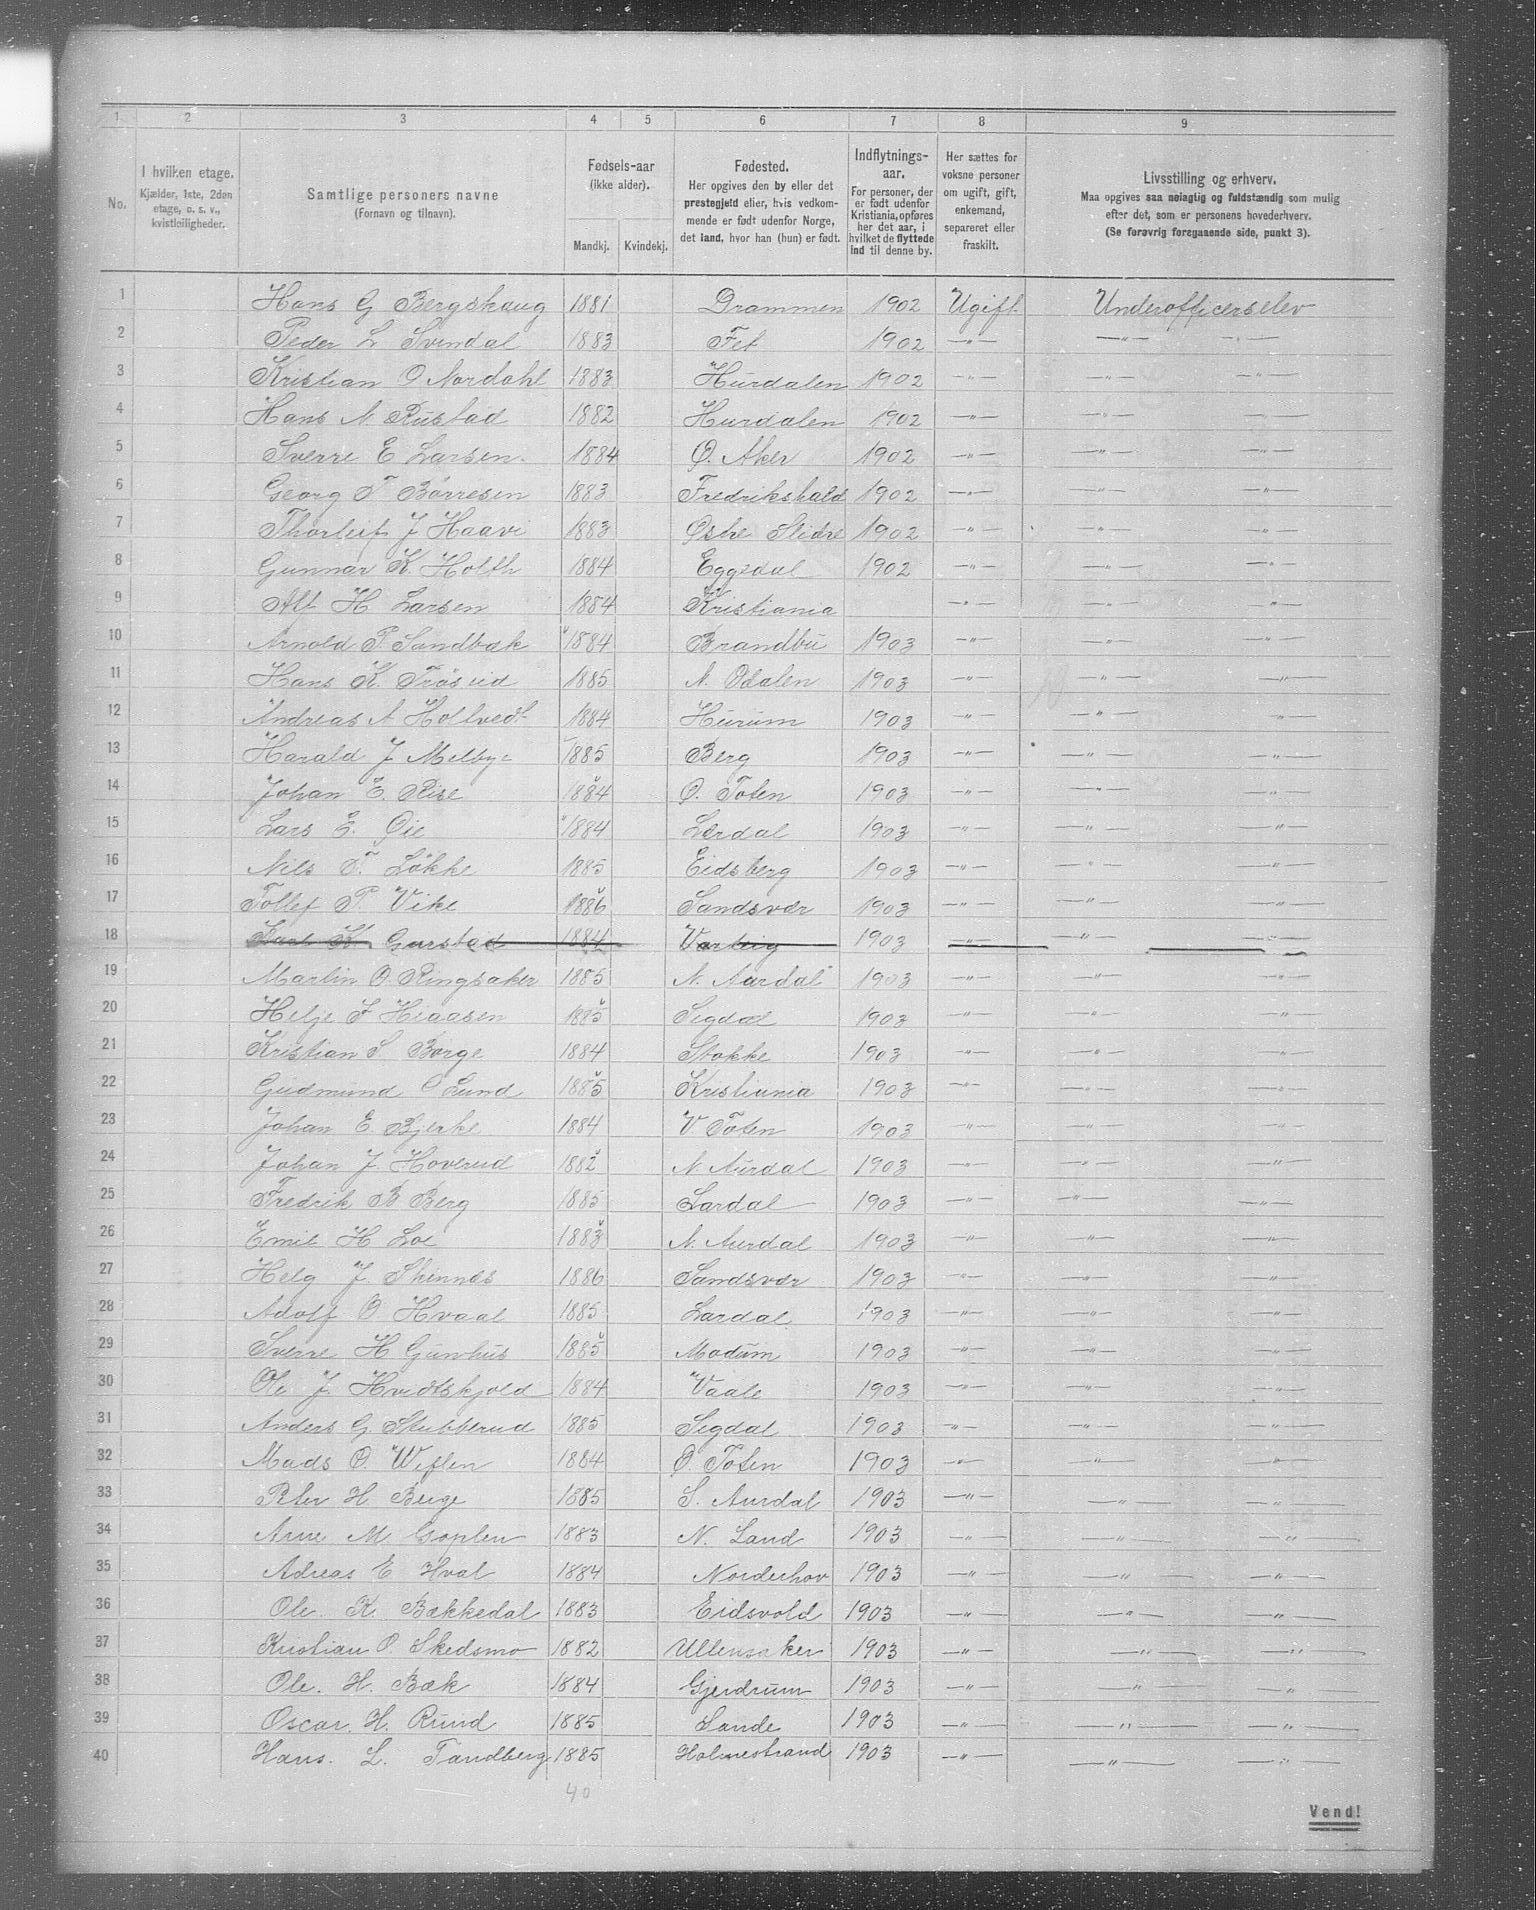 1 2 3 4 5 6 7 8 9
No. I hvilken etage. Kjælder, 1ste, 2den etage, o. s. v., kvistleiligheder. Samtlige personers navne (Fornavn og tilnavn). Fødsels-aar (ikke alder). Mandkj. Kvindekj. Fødested. Her opgives den by eller det prestegjeld eller, hvis vedkommende er født udenfor Norge, det land, hvor han (hun) er født. Indflytnings-aar. For personer, der er født udenfor Kristiania, opføres her det aar, i hvilket de flyttede ind til denne by. Her sættes for voksne personer om ugift, gift, enkemand, separeret eller fraskilt. Livsstilling og erhverv. Maa opgives saa nøiagtig og fuldstændig som mulig efter det, som er personens hovederhverv. (Se forøvrig foregaaende side, punkt 3).
1 Hans G Bergskaug 1881 Drammen 1902 Ugift Underofficerselev
2 Peder L Svindal 1883 Fet 1902 —"— —"— —"—
3 Kristian O Nordahl 1883 Hurdalen 1902 —"— —"— —"—
4 Hans N Rustad 1882 Hurdalen 1902 —"— —"— —"—
5 Sverre E Larsen. 1884 Ø. Aker 1902 —"— —"— —"—
6 Georg T Børresen 1883 Fredrikshald 1902 —"— —"— —"—
7 Thorleif J Haavi 1883 Østre Slidre 1902 —"— —"— —"—
8 Gunnar K. Holth 1884 Eggedal 1902 —"— —"— —"—
9 Alf H Larsen 1884 Kristiania —"— —"— —"—
10 Arnold P Sandbæk 1884 Brandbu 1903 —"— —"— —"—
11 Hans K. Trøsvid 1885 N. Odalen 1903 —"— —"— —"—
12 Andreas A Holtvedt 1884 Hurum 1903 —"— —"— —"—
13 Harald J Melbye 1885 Berg 1903 —"— —"— —"—
14 Johan E. Rise 1884 Ø. Toten 1903 —"— —"— —"—
15 Lars E. Øie 1884 Lærdal 1903 —"— —"— —"—
16 Nils T. Løkke 1885 Eidsberg 1903 —"— —"— —"—
17 Tollef P. Vike 1886 Sandsvær 1903 —"— —"— —"—
18 K. Garstad 1884 Varteig 1903 —"— —"— —"—
19 Martin O. Ringsaker 1885 N. Aurdal 1903 —"— —"— —"—
20 Helje F Hiaasen 1885 Sigdal 1903 —"— —"— —"—
21 Kristian S Borge 1884 Stokke 1903 —"— —"— —"—
22 Gudmund O Lund 1885 Kristiania 1903 —"— —"— —"—
23 Johan E. Bjerke 1884 V. Toten 1903 —"— —"— —"—
24 Johan J Hoverud 1882 N Aurdal 1903 —"— —"— —"—
25 Fredrik B Berg 1885 Lardal 1903 —"— —"— —"—
26 Emil H Loe 1883 N. Aurdal 1903 —"— —"— —"—
27 Helg J Skinnes 1886 Sandsvær 1903 —"— —"— —"—
28 Adolf O Hvaal 1885 Lardal 1903 —"— —"— —"—
29 Sverre H Gunhus 1885 Modum 1903 —"— —"— —"—
30 Ole J Hvidtskjold 1884 Vaale 1903 —"— —"— —"—
31 Anders G Skubberud 1885 Sigdal 1903 —"— —"— —"—
32 Mads O. Weflen 1884 Ø. Toten 1903 —"— —"— —"—
33 Peter H Berge 1885 S. Aurdal 1903 —"— —"— —"—
34 Arne M Goplen 1883 N. Land 1903 —"— —"— —"—
35 Adreas E Hval 1884 Norderhov 1903 —"— —"— —"—
36 Ole. K. Bækkedal 1883 Eidsvold 1903 —"— —"— —"—
37 Kristian O. Skedsmo 1882 Ullensaker 1903 —"— —"— —"—
38 Ole. H. Bæk 1884 Gjerdrum 1903 —"— —"— —"—
39 Oscar. H. Rund 1885 Sande 1903 —"— —"— —"—
40 Hans. L. Tandberg 1885 Holmestrand 1903 —"— —"— —"—
40
Vend!